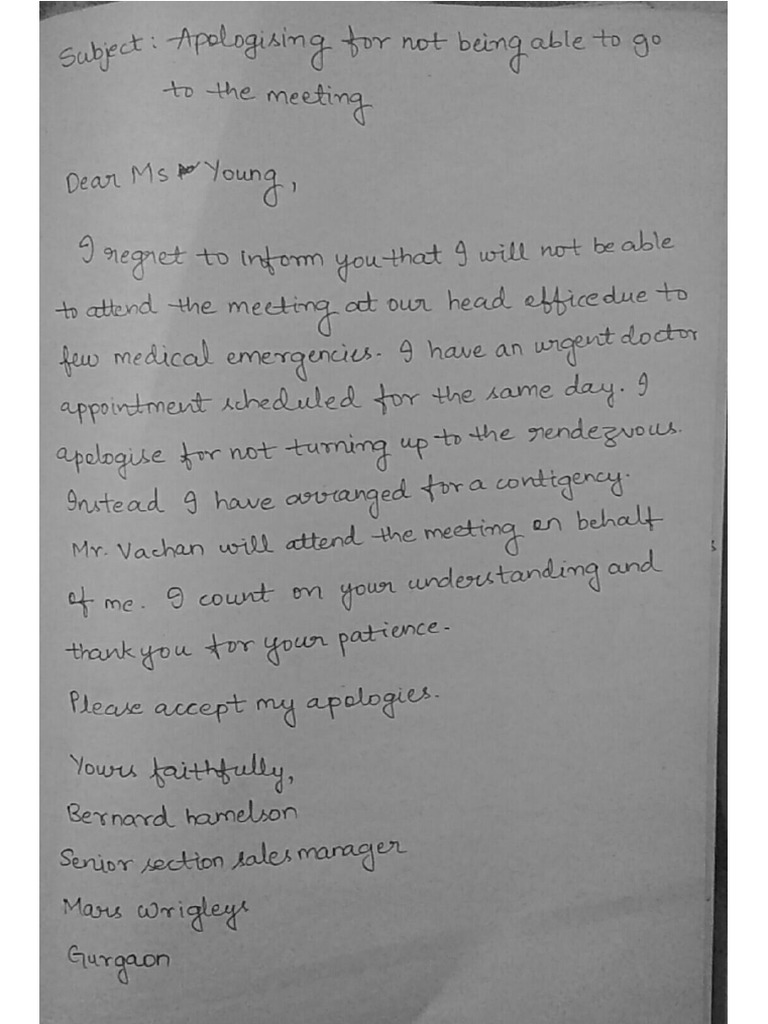 Subject: Apologising for not being able to go
to the meeting
Dear Ms Young,
I regret to inform you that I will not be able
to attend the meeting at our head office due to
few medical emergencies. I have an urgent doctor
appointment scheduled for the same day. I
apologise for not turning up to the rendezvous.
Instead I have arranged for a contigency.
Mr. Vachan will attend the meeting on behalf
of me. I count on your understanding and
thank you for your patience.
Please accept my apologies.
Yours faithfully,
Bernard hamelson
Senior section sales manager
Mars wrigleys
Gurgaon